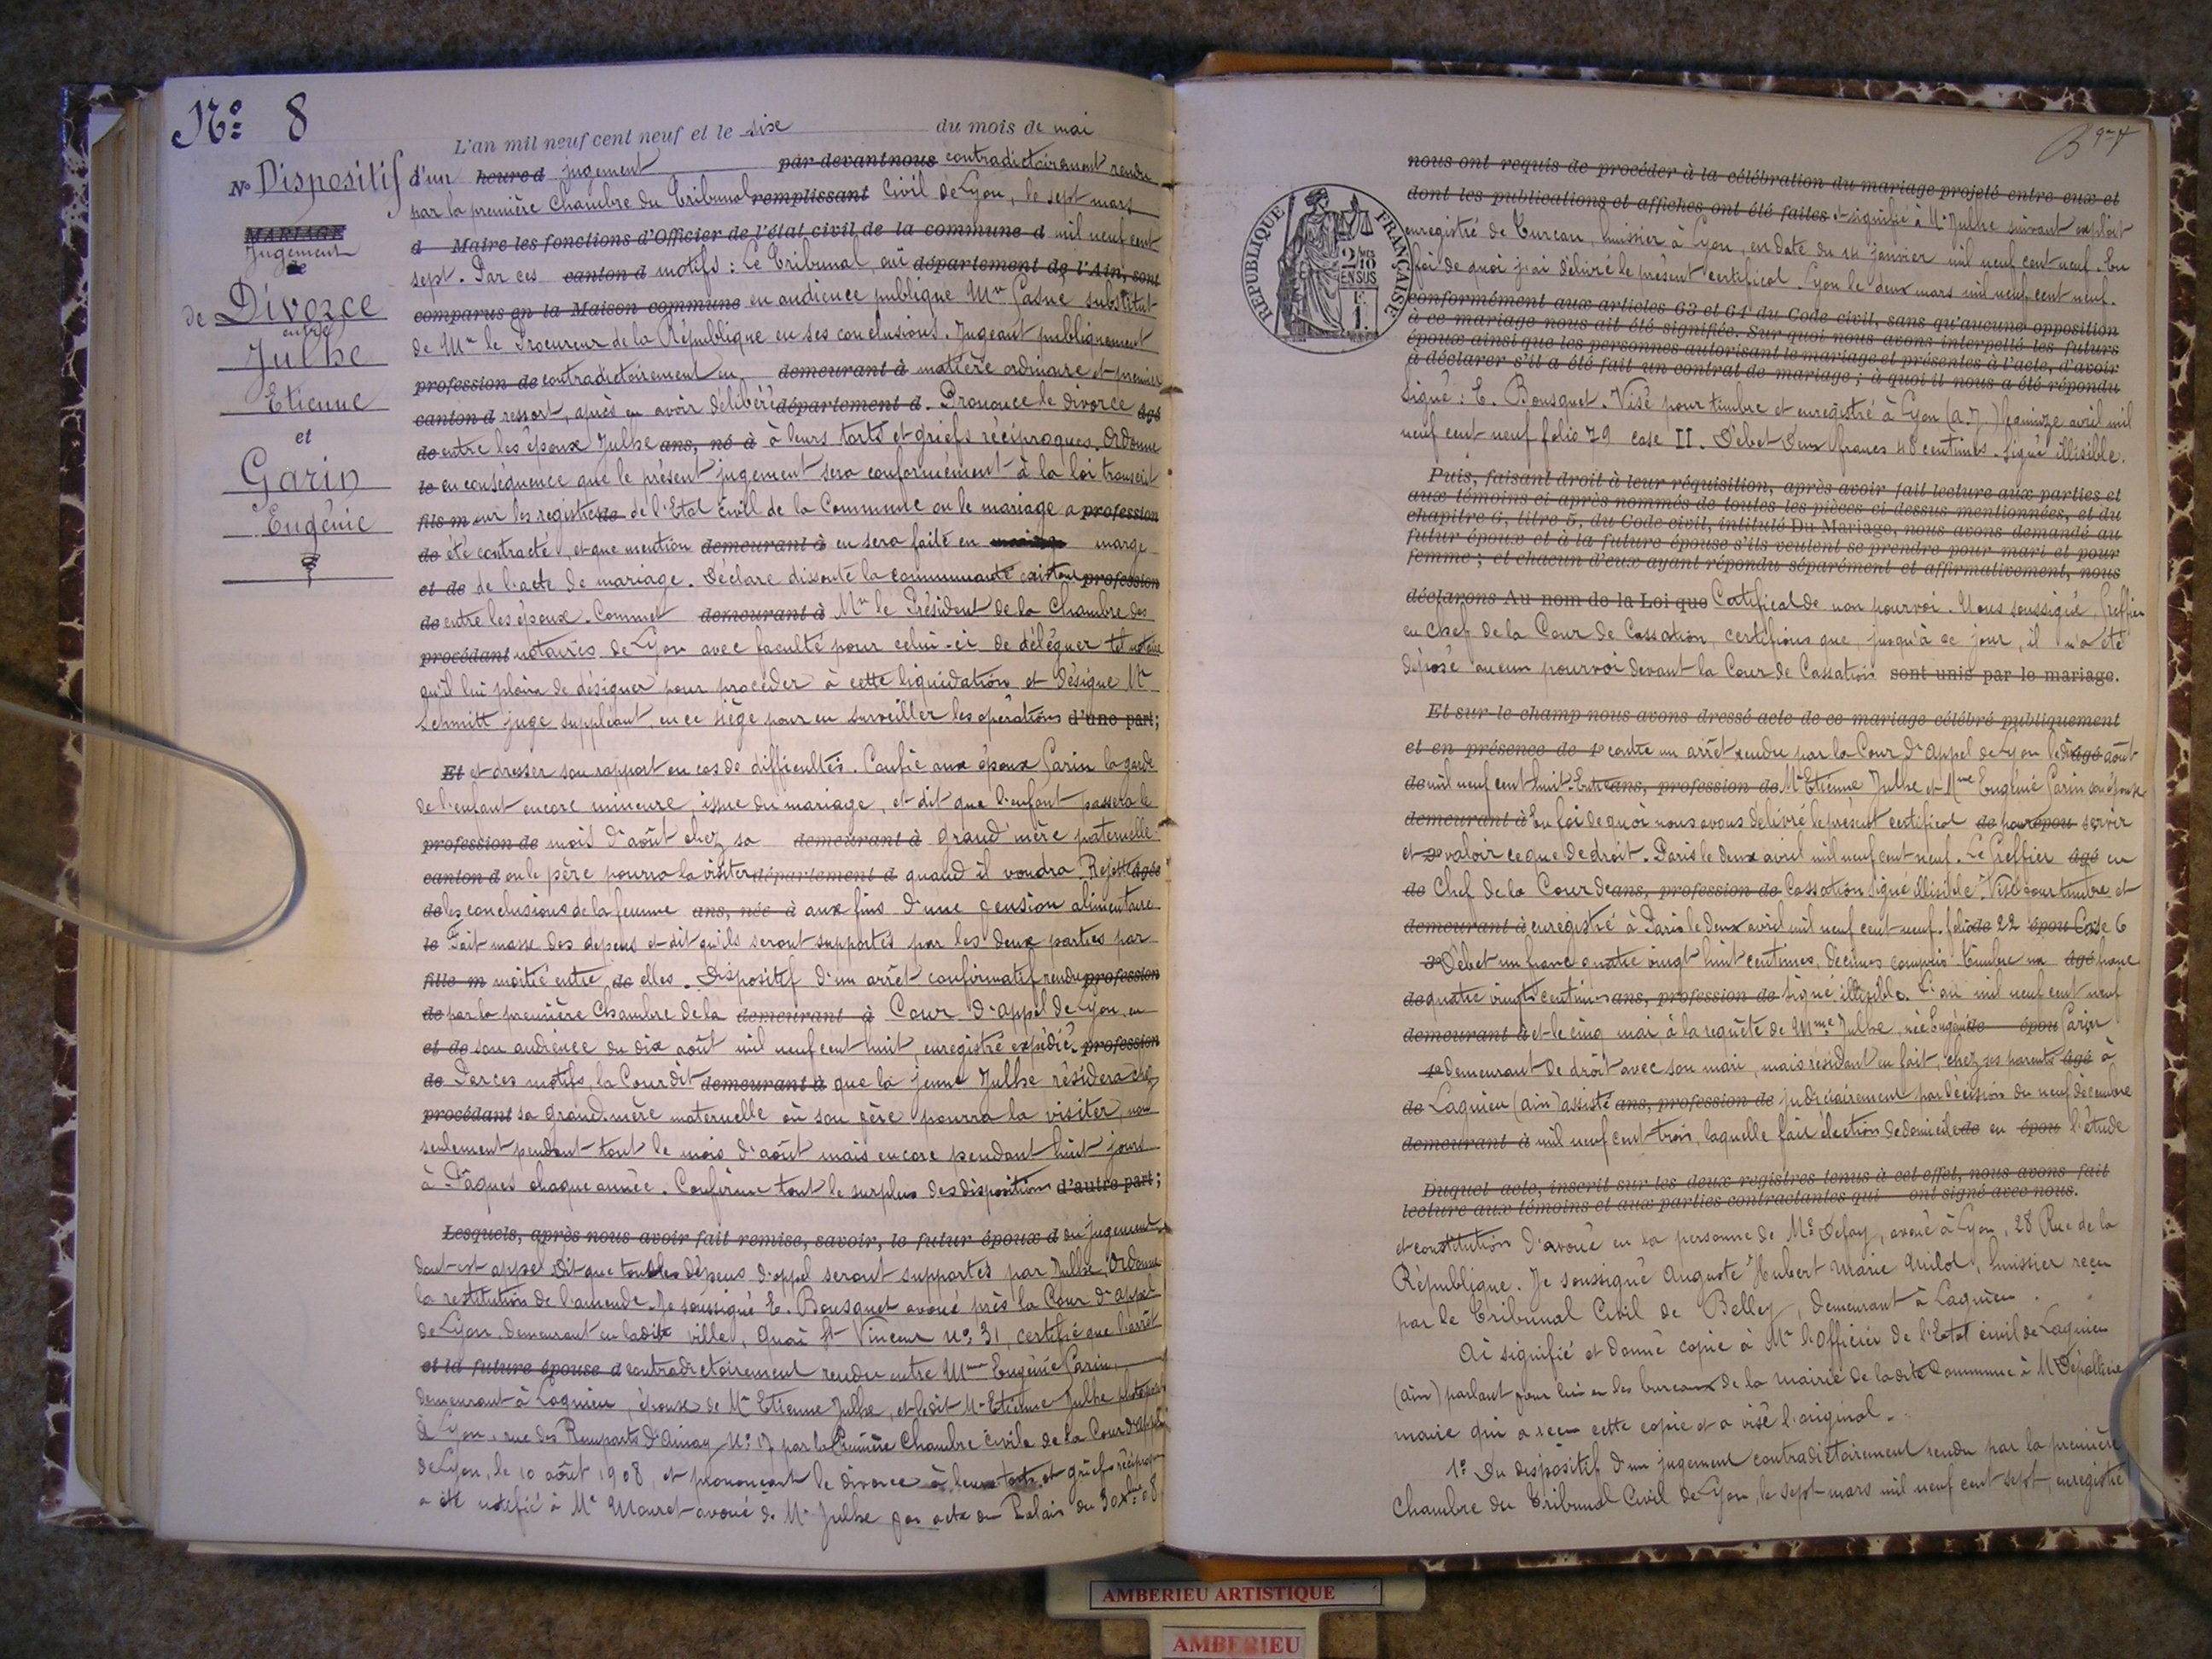 N° 8
L'an mil neuf cent neuf et le six du mois de mai
N° Dispositif d'un heure d jugement par devant nous contradictoirement rendu
par la première Chambre du Tribunal remplissant Civil de Lyon, le sept mars
d Maire les fonctions d'Officier de l'état civil de la commune d mil neuf cent
sept. Par ces canton d motifs : Le Tribunal, ouï département de l'Ain, sont
comparus en la Maison commune en audience publique Mr substitut
de Mr le Procureur de la République en ses conclusions. Jugeant publiquement
profession de contradictoirement en demeurant à matière ordinaire et premier
canton d ressort, après en avoir délibéré département d . Prononce le divorce âgé
de entre les époux Julhe ans, né à à leurs torts et griefs réciproques. Ordonne
le en conséquence que le présent jugement sera conformément à la loi transcrit
fils m sur les registres de de l'Etat Civil de la Commune où le mariage a profession
de été contracté, et que mention demeurant à en sera faite en marge
et de de l'acte de mariage. Déclare dissoute la communauté existant profession
de entre les époux. Commet demeurant à Mr le Président de la Chambre des
procédant notaires de Lyon avec faculté pour celui-ci de déléguer tel notaire
qu'il lui plaira de désigner pour procéder à cette liquidation et désigne Mr
Schmitt juge suppléant, en ce siège pour en surveiller les opérations d'une part;
Et et dresser son rapport en cas de difficultés. Confie aux époux Garin la garde
de l'enfant encore mineure, issue du mariage, et dit que l'enfant passera le
profession de mois d'août chez sa demeurant à grand'mère paternelle
canton d où le père pourra la visiter département d quand il voudra. Rejette âgée
de les conclusions de la femme ans, née à aux fins d'une pension alimentaire
le Fait masse des dépens et dit qu'ils seront supportés par les deux parties par
fille m moitié entre de elles. Dispositif d'un arrêt confirmatif rendu profession
de par la première Chambre de la demeurant à Cour d'appel de Lyon, en
et de son audience du dix août mil neuf cent huit, enregistré expédié. profession
de Par ces motifs, la Cour dit demeurant à que la jeune Julhe résidera chez
procédant sa grand-mère maternelle où son père pourra la visiter, non
seulement pendant tout le mois d'août mais encore pendant huit jours
à Pâques chaque année. Confirme tout le surplus des dispositions d'autre part;
Lesquels, après nous avoir fait remise, savoir, le futur époux d du jugement
dont est appel. Dit que tous les dépens d'appel seront supportés par Julhe. Ordonne
la restitution de l'amende. Je soussigné E. Bousquet avoué près la Cour d'appel
de Lyon, demeurant en ladite ville, Quai St Vincent n° 31, certifie que l'arrêt
et la future épouse d contradictoirement rendu entre Mme Eugénie Garin,
demeurant à Lagnieu, épouse de Mr Etienne Julhe, et ledit Mr Etienne Julhe
à Lyon, rue des Remparts d'Ainay N° 17 par la Première Chambre civile de la Cour d'appel
de Lyon, le 10 août 1908, et prononçant le divorce à leurs torts et griefs
a été notifié à Me Mouret avoué de Mr Julhe par acte du Palais du 30 Xbre 08
MARIAGE
Jugement
de
de Divorce
entre
Julhe
Etienne
et
Garin
Eugénie
nous ont requis de procéder à la célébration du mariage projeté entre eux et
dont les publications et affiches ont été faites et signifié à Mr Julhe suivant exploit
enregistré de Tureau, huissier à Lyon, en date du 14 janvier mil neuf cent neuf. En
foi de quoi j'ai délivré le présent certificat. Lyon le deux mars mil neuf cent neuf.
conformément aux articles 63 et 64 du Code civil, sans qu'aucune opposition
à ce mariage nous ait été signifiée. Sur quoi nous avons interpellé les futurs
époux ainsi que les personnes autorisant le mariage et présentes à l'acte, d'avoir
à déclarer s'il a été fait un contrat de mariage ; à quoi il nous a été répondu
Signé : E. Bousquet. Visé pour timbre et enregistré à Lyon (A.J.) le quinze avril mil
neuf cent neuf folio 79 case II. Débet Deux francs 48 centimes. Signé illisible.
Puis, faisant droit à leur réquisition, après avoir fait lecture aux parties et
aux témoins ci après nommés de toutes les pièces ci dessus mentionnées, et du
chapitre 6, titre 5, du Code civil, intitulé Du Mariage, nous avons demandé au
futur époux et à la future épouse s'ils veulent se prendre pour mari et pour
femme ; et chacun d'eux ayant répondu séparément et affirmativement, nous
déclarons Au nom de la Loi que Certificat de non pourvoi. Nous soussigné, Greffier
en Chef de la Cour de Cassation, certifions que, jusqu'à ce jour, il n'a été
déposé aucun pourvoi devant la Cour de Cassation sont unis par le mariage.
Et sur-le-champ nous avons dressé acte de ce mariage célébré publiquement
et en présence de 1° contre un arrêt rendu par la Cour d'Appel de Lyon le dix âgé août
de mil neuf cent huit. Entre ans, profession de Mr Etienne Julhe et Mme Eugénie Garin son épouse
demeurant à En foi de quoi nous avons délivré le présent certificat de pour épou servir
et 2° valoir ce que de droit. Paris le deux avril mil neuf cent neuf. Le Greffier âgé en
de Chef de la Cour de ans, profession de Cassation signé illisible. Visé pour timbre et
demeurant à enregistré à Paris le deux avril mil neuf cent neuf. folio de 22 épou Case 6
3° Débet un franc quatre vingt huit centimes, décimes compris timbre un âgé franc
de quatre vingts centimes ans, profession de signé illisible. L'an mil neuf cent neuf
demeurant à et le cinq mai, à la requête de Mme Julhe, née Eugénie de épou Garin
4° demeurant de droit avec son mari, mais résidant en fait, chez ses parents âgé à
de Lagnieu (Ain) assisté ans, profession de judiciairement par décision du neuf décembre
demeurant à mil neuf cent trois, laquelle fait élection de domicile de en épou l'étude
Duquel acte, inscrit sur les deux registres tenus à cet effet, nous avons fait
lecture aux témoins et aux parties contractantes qui ont signé avec nous.
et constitution d'avoué en la personne de Me Defay, avoué à Lyon, 28 Rue de la
République. Je soussigné Auguste Hubert Marie Guilot, huissier reçu
par le Tribunal Civil de Belley, demeurant à Lagnieu.
Ai signifié et donné copie à Mr l'Officier de l'Etat civil de Lagnieu
(Ain) parlant pour lui en les bureaux de la mairie de ladite Commune à Mr
maire qui a reçu cette copie et a visé l'original.
1° Du dispositif d'un jugement contradictoirement rendu par la première
Chambre du Tribunal Civil de Lyon, le sept mars mil neuf cent sept, enregistré
REPUBLIQUE FRANÇAISE
2/10MES
EN SUS
1F.
AMBERIEU ARTISTIQUE
AMBERIEU